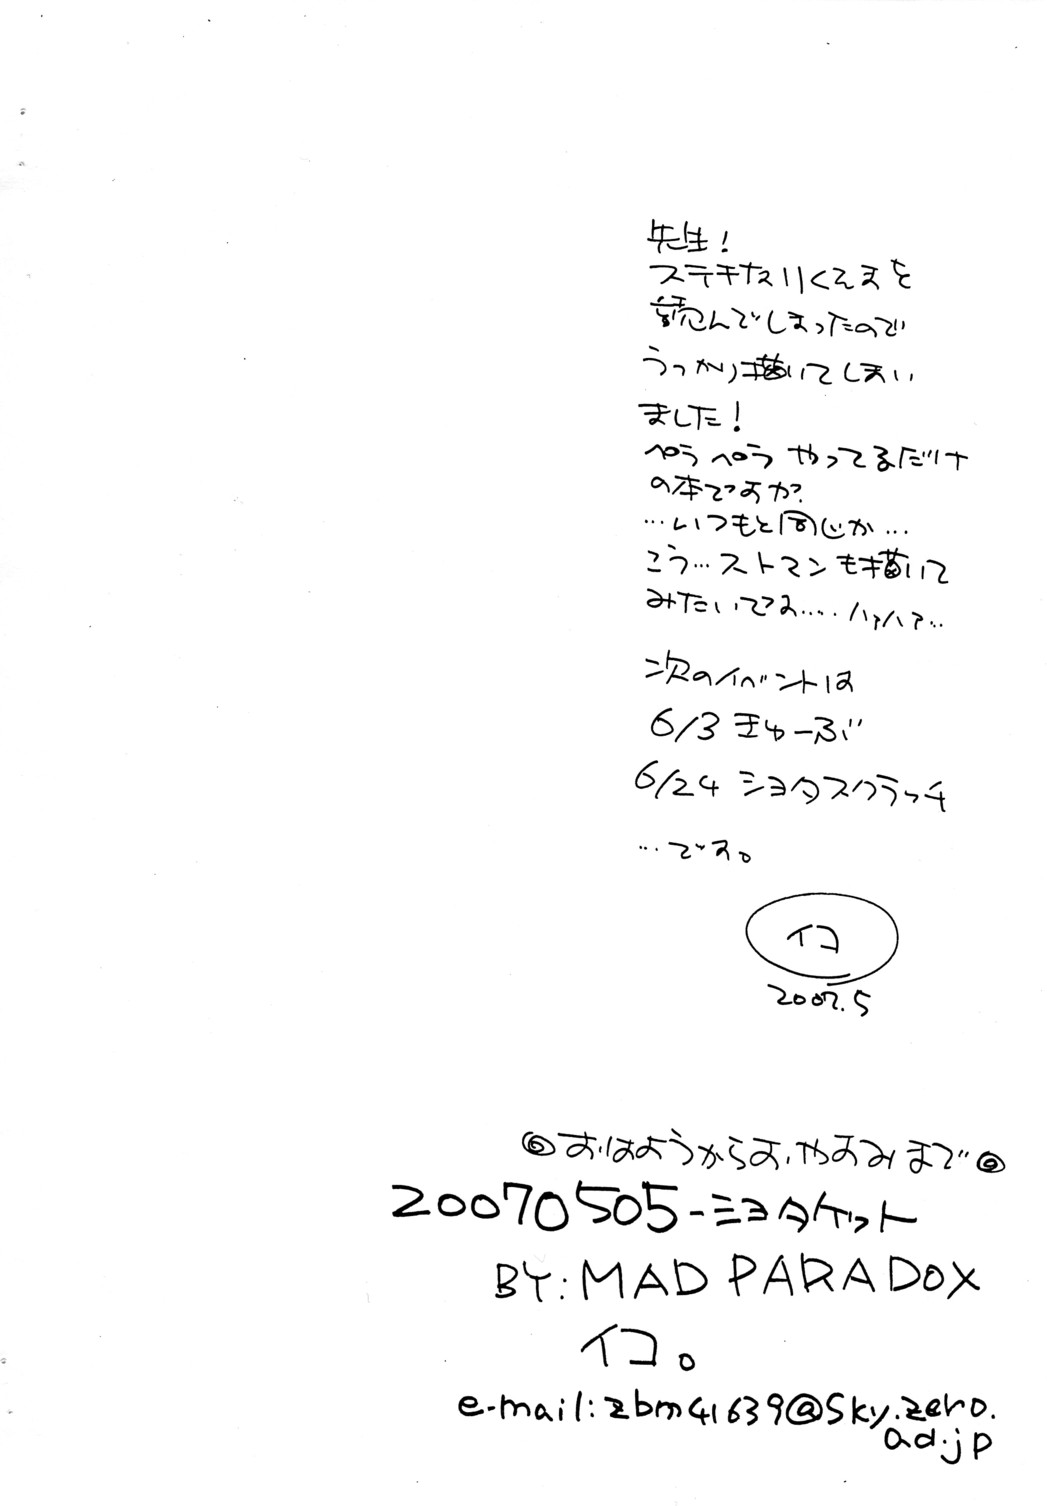 先生!
ステキなリくえすを
読んでしまったので
うっかり描いてしまい
ました!
ペラペラ やってるだけ
の本ですが?
…いつもと同じか…
こう…ストマンも描いて
みたいです…. ハァハァ…
次のイベントは
6/3 きゅーぶ
6/24 ショタスクラッチ
…です。
イコ
2007.5
◎おはようからおやすみまで◎
20070505-ショタケット
BY:MAD PARADOX
イコ。
e-mail:zbm41639@sky.zero.
ad.jp